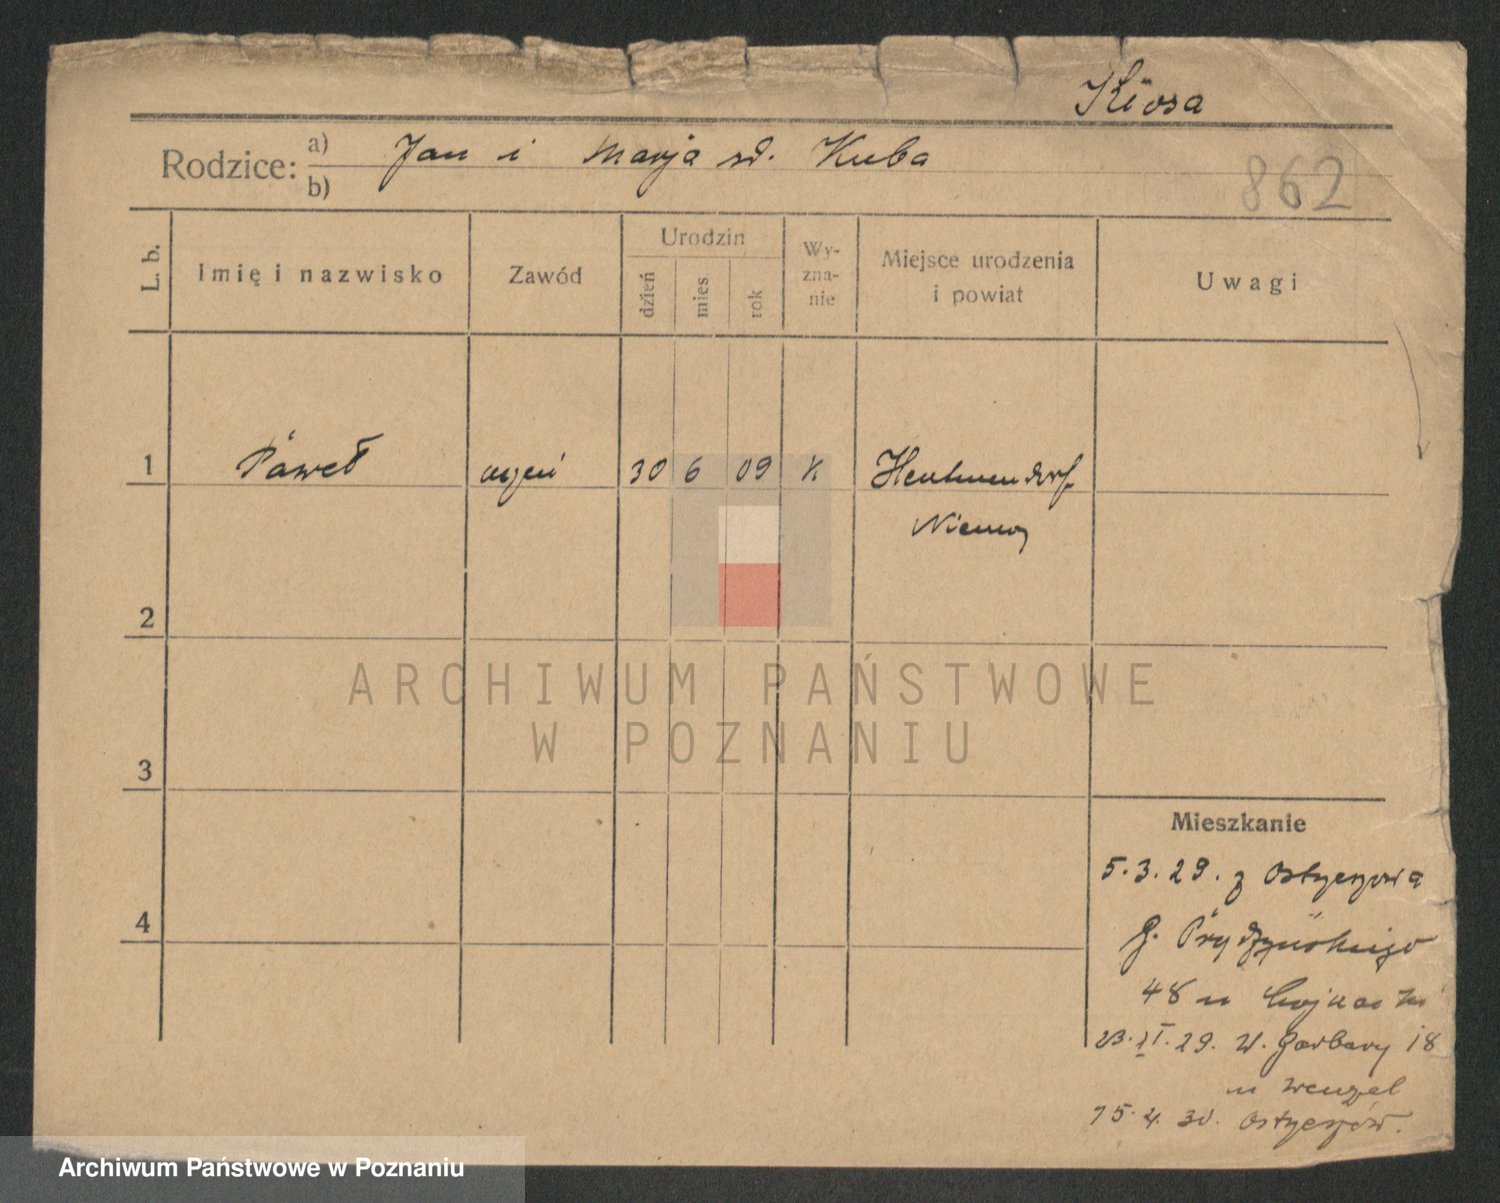 Kiosa
Rodzice: a) Jan i Marja sd. Kuba
b)
862
L. b.
Imię i nazwisko
Zawód
Urodzin
dzień
mies
rok
Wy-
zna-
nie
Miejsce urodzenia
i powiat
Uwagi
1 Paweł uczeń 30 6 09 K
Niemcy
2
3
4
ARCHIWUM PAŃSTWOWE
W POZNANIU
Mieszkanie
5.3.29. z Ostrzeszowa
G. Prądzyńskiego
48 u
23. XI. 29. W. Garbary 18
u Wenzel
15. 4. 30. Ostrzeszów.
Archiwum Państwowe w Poznaniu